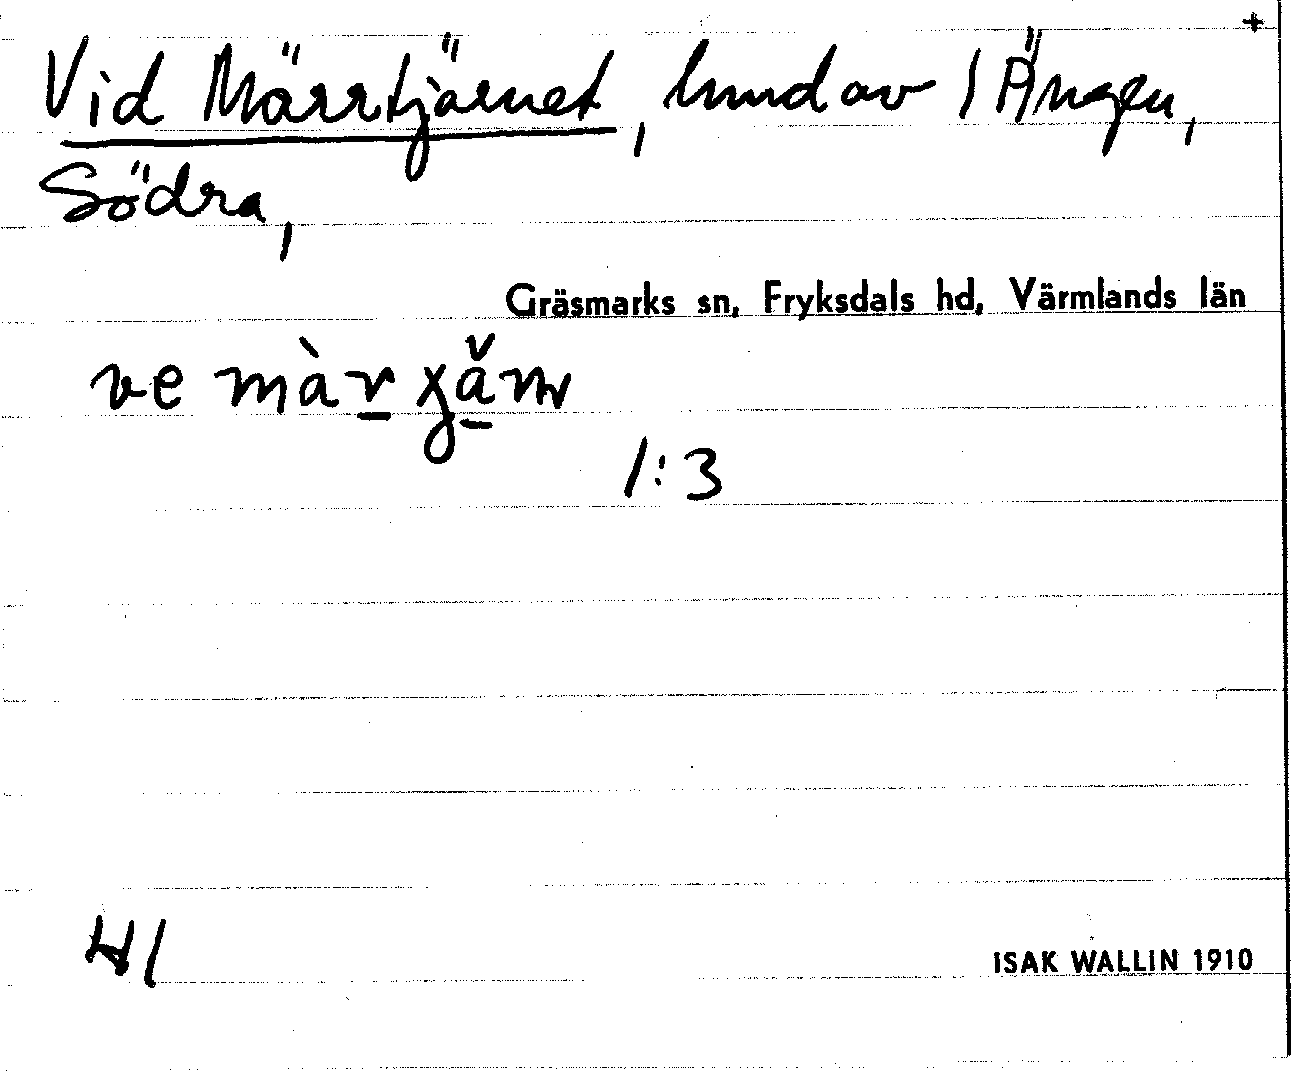 +
Vid Märrtjärnet, hmd av 1 Ängen,
Södra,
Gräsmarks sn, Fryksdals hd, Värmlands län
ve màr
1:3
41
ISAK WALLIN 1910